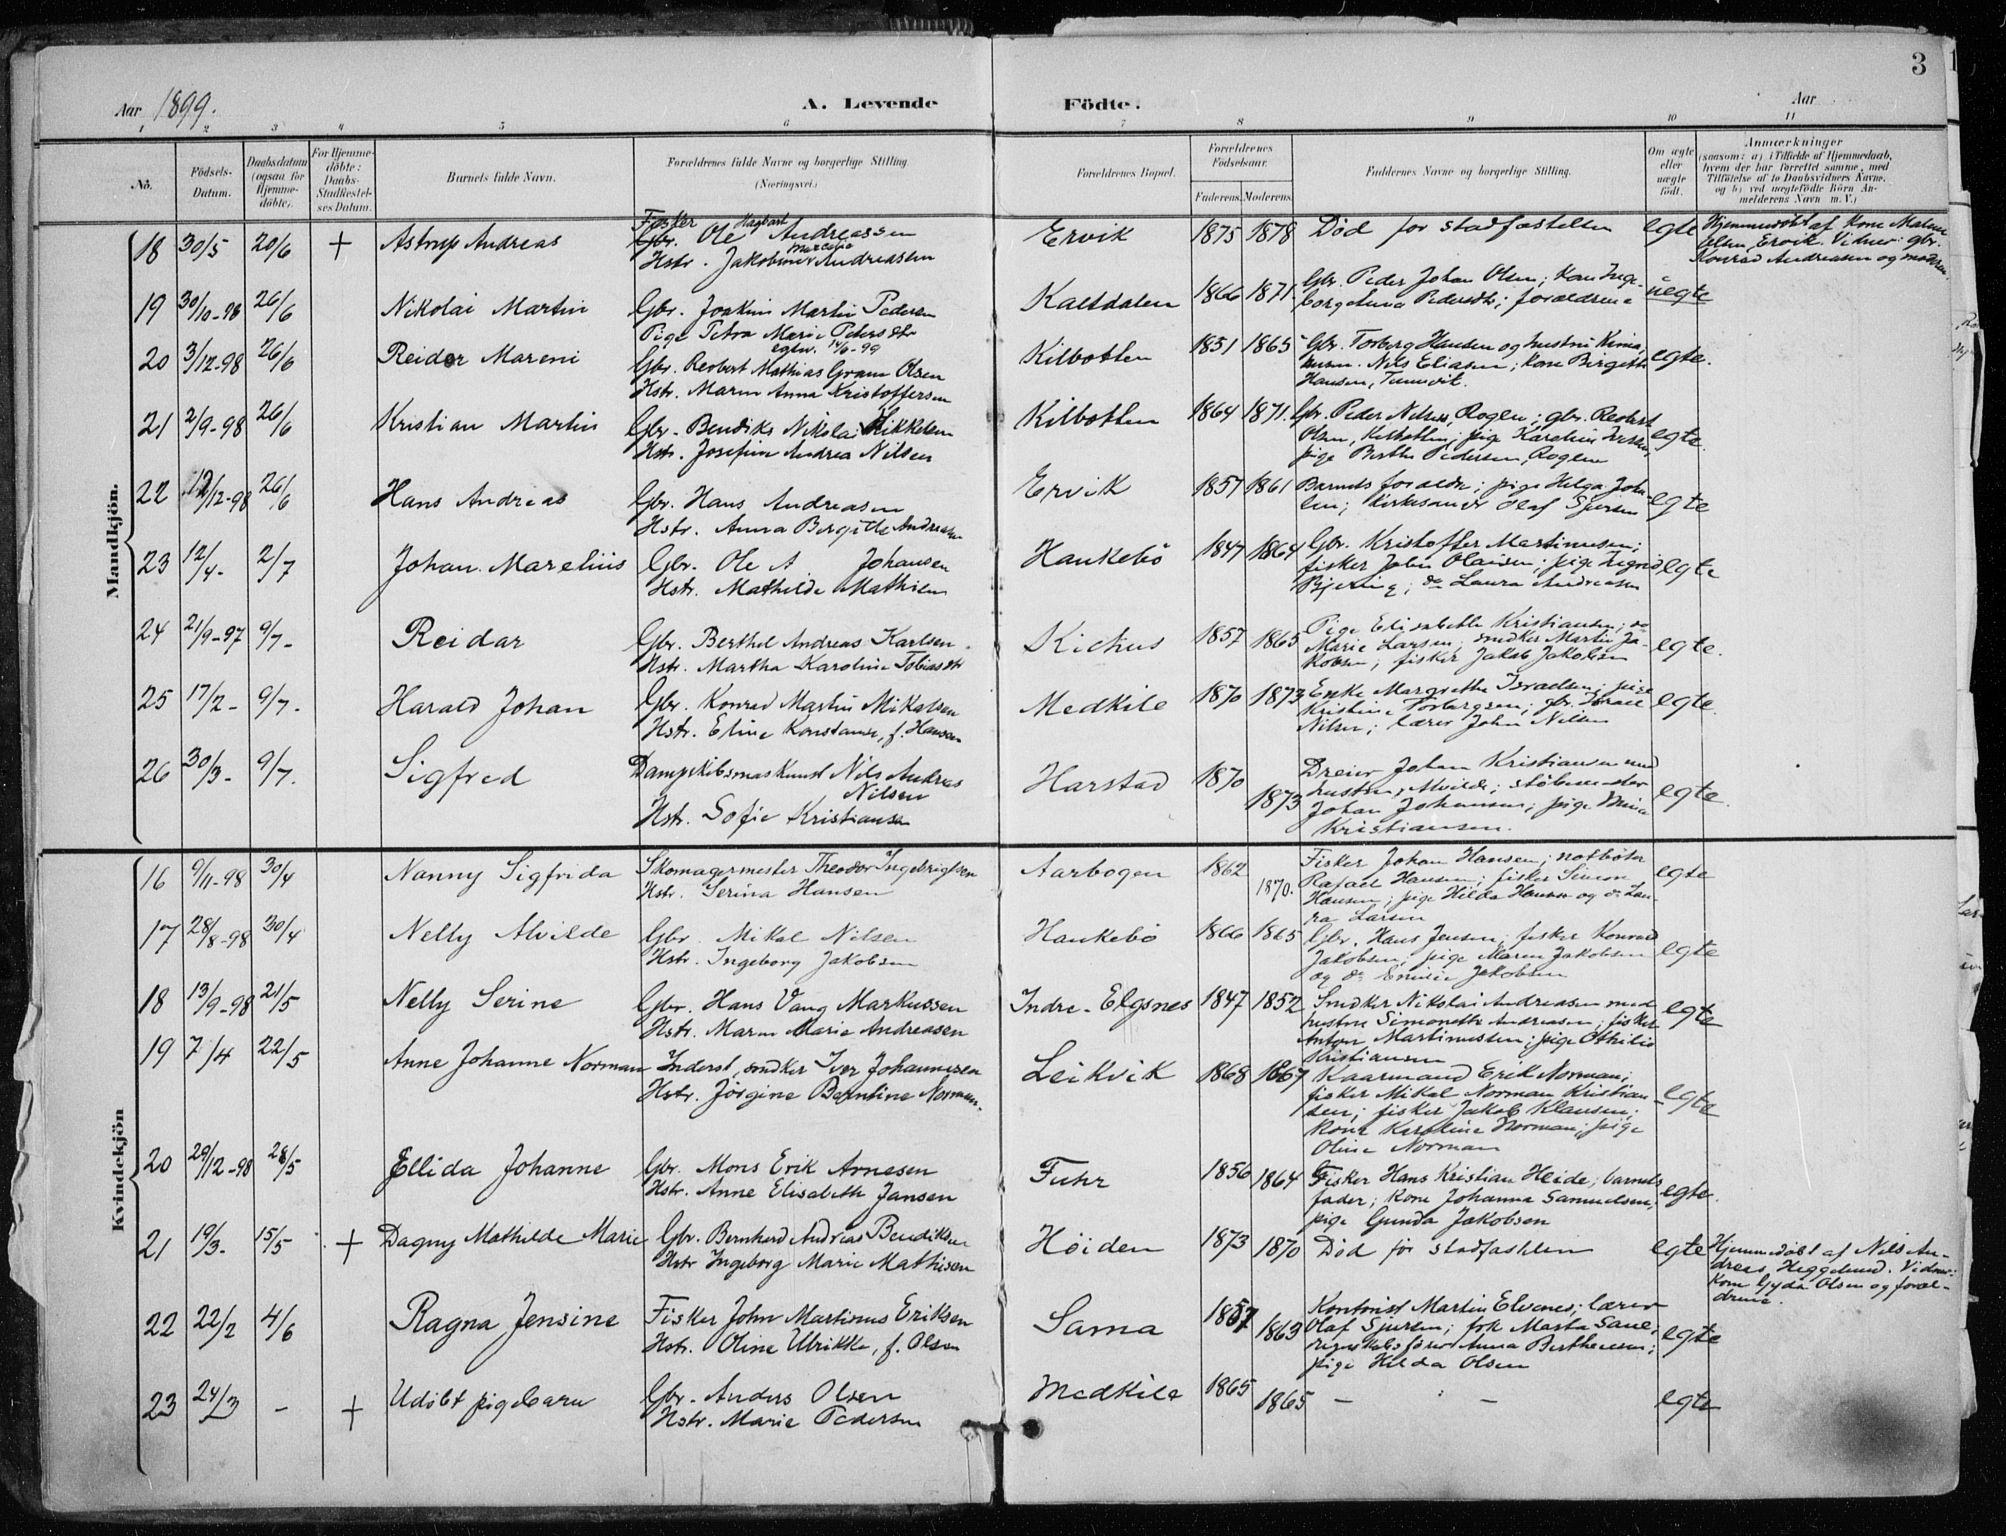 3
Aar 1899.
A. Levende
Födte.
Aar
1 2 3 4 5 6 7 8 9 10 11
Nö.
Födsels-
Datum.
Daabsdatum
(ogsaa for
Hjemme-
döbte).
For Hjemme-
döbte:
Daabs-
Stadfæstel-
ses Datum.
Barnets fulde Navn.
Forældrenes fulde Navne og borgerlige Stilling
(Næringsvei.)
Forældrenes Bopæl.
Forældrenes
Födselsaar.
Faderens. Moderens.
Faddernes Navne og borgerlige Stilling.
Om ægte
eller
uægte
födt.
Anmærkninger
(saasom: a) i Tilfælde af Hjemmedaab,
hvem der har forrettet samme, med
Tilföielse af to Daabsvidners Navne,
og b) ved uægtefödte Börn An-
melderens Navn m. V.)
Mandkjön.
18 30/5 20/6 + Astrup Andreas
Fisker Hagbart
Gbr. Ole Andreassen
Hstr. Jakobine Andreassen
Ervik 1875 1878 Død før stadfæstelsen egte
Hjemmedøbt af Kone Maline
Olsen, Ervik. Vidner: gbr.
Konrad Andreasen og moderen.
19 30/10-98 26/6 Nikolai Martin
Gbr. Joakim Martin Pedersen
Pige Petra Marie Pedersdtr
egtev. 14/6-99
Kaltdalen 1866 1871.
Gbr. Peder Johan Olsen; Kone Inge-
borg Anna Pedersdtr; forældrene
uegte
20 3/12-98 26/6 Reidar Mareni
Gbr. Reobert Mathias Gram Olsen
Hstr. Maren Anna Kristoffersen
Kilbotten 1851 1865
Gbr. Torberg Hansen og hustru Kima;
Nils Eliasen; Kone Birgitte
Hansen,
egte.
21 2/9-98 26/6 Kristian Martin
Gbr. Bendiks Nikolai Mikkelsen
Hstr. Josefine Andrea Nilsen
Kilbotten 1864 1871.
Gbr. Peder Nilsen, Rogla; gbr. Reobert
Olsen, Kilbotten; pige Kareline
pige Berthe Pedersen, Rogla
egte
22 12/12-98 26/6 Hans Andreas
Gbr. Hans Andreasen
Hstr. Anna Birgitte Andreasen
Ervik 1857 1861
Barnets forældre; pige Helga Joha-
sen; Kirkesanger Olaf Sjursen
egte
23 12/4- 2/7 Johan Marelius
Gbr. Ole A Johansen
Hstr. Mathilde Mathisen
Haukebø 1847 1864
Gbr. Kristoffer Martinusen;
fisker John Olaisen; pige Sigrid
Bjering; do Laura Andreasen
egte
24 21/9-97 9/7- Reidar
Gbr. Berthel Andreas Karlsen
Hstr. Martha Karoline Tobiasdtr
Kichus 1857 1865
Pige Elisabeth Kristiansen; do
Marie Larsen; snedker Martin Ja-
kobsen; fisker Jakob Jakobsen
egte.
25 17/2- 9/7- Harald Johan
Gbr. Konrad Martin Mikalsen
Hstr. Eline Konstanse, f. Hansen
Medkile 1870 1873
Enke Margrethe Israelsen; pige
Kristine Torbergsen; gbr. Israel
Nilsen; lærer John Nilsen
egte.
26 30/3- 9/7. Sigfred
Dampskibsmaskinist Nils Andreas
Nilsen
Hstr. Sofie Kristiansen
Harstad 1870 1873
Dreier Johan Kristiansen med
hustru, Alvilde; støbemester
Johan Johansen; pige Mina
Kristiansen.
egte.
Kvindekjön
16 9/11-98 30/4 Nanny Sigfrida
Skomagermester Theodor Ingebrigtsen
Hstr. Serina Hansen
Aarbogen 1862 1870.
Fisker Johan Hansen; notbøter
Rafael Hansen; fisker Simon
Hansen; pige Hilda Hansen og do Lau-
ra Larsen
egte
17 28/8-98 30/4 Nelly Alvilde
Gbr. Mikal Nilsen
Hstr. Ingeborg Jakobsen
Haukebø 1866 1865
Gbr. Hans Jensen; fisker Konrad
Jakobsen; pige Maren Jakobsen
og do Emilie Jakobsen
egte
18 13/9-98 21/5 Nelly Serine
Gbr. Hans Vang Markussen
Hstr. Maren Marie Andreasen
Indre-Elgsnes 1847 1852
Snedker Nikolai Andreasen med
hustru Simonette Andreasen; fisker
Anton Martinussen; pige Othilie
Kristiansen
egte
19 7/4 22/5 Anne Johanne Norman
Inderst, snedker Iver Johannesen
Hstr. Jørgine Berntine Norman.
Leikvik 1868 1867
Kaarmand Erik Norman;
fisker Mikal Norman Kristian-
sen; fisker Jakob Klausen;
Kone Karoline Norman; pige
Oline Norman
egte
20 29/12-98 28/5 Ellida Johanne
Gbr. Mons Erik Arnesen
Hstr. Anne Elisabeth Jansen
Fuhr 1856 1864
Fisker Hans Kristian Heide; barnets
fader; Kone Johanna Samuelsen;
pige Gunda Jakobsen
egte.
21 19/3- 15/5 + Dagny Mathilde Marie
Gbr. Bernhard Andreas Bendiksen
Hstr Ingeborg Marie Mathisen
Høiden 1873 1870 Død før stadfæstelsen egte
Hjemmedøbt af Nils An-
dreas Heggelund. Vidner:
Kone Gyda Olsen og foræl-
drene.
22 22/2 4/6 Ragna Jensine
Fisker John Martinus Eriksen
Hstr. Oline Ulrikke, f. Olsen
Sama 1867 1863
Kontorist Martin Elvenes; lærer
Olaf Sjursen; frk Marta Saue;
regnskabsfører Anna Bertheussen;
pige Hilda Olsen
egte
23 24/3 - + Udøbt pigebarn
Gbr. Anders Olsen
Hstr. Marie Pedersen
Medkile 1865 1865 - - egte